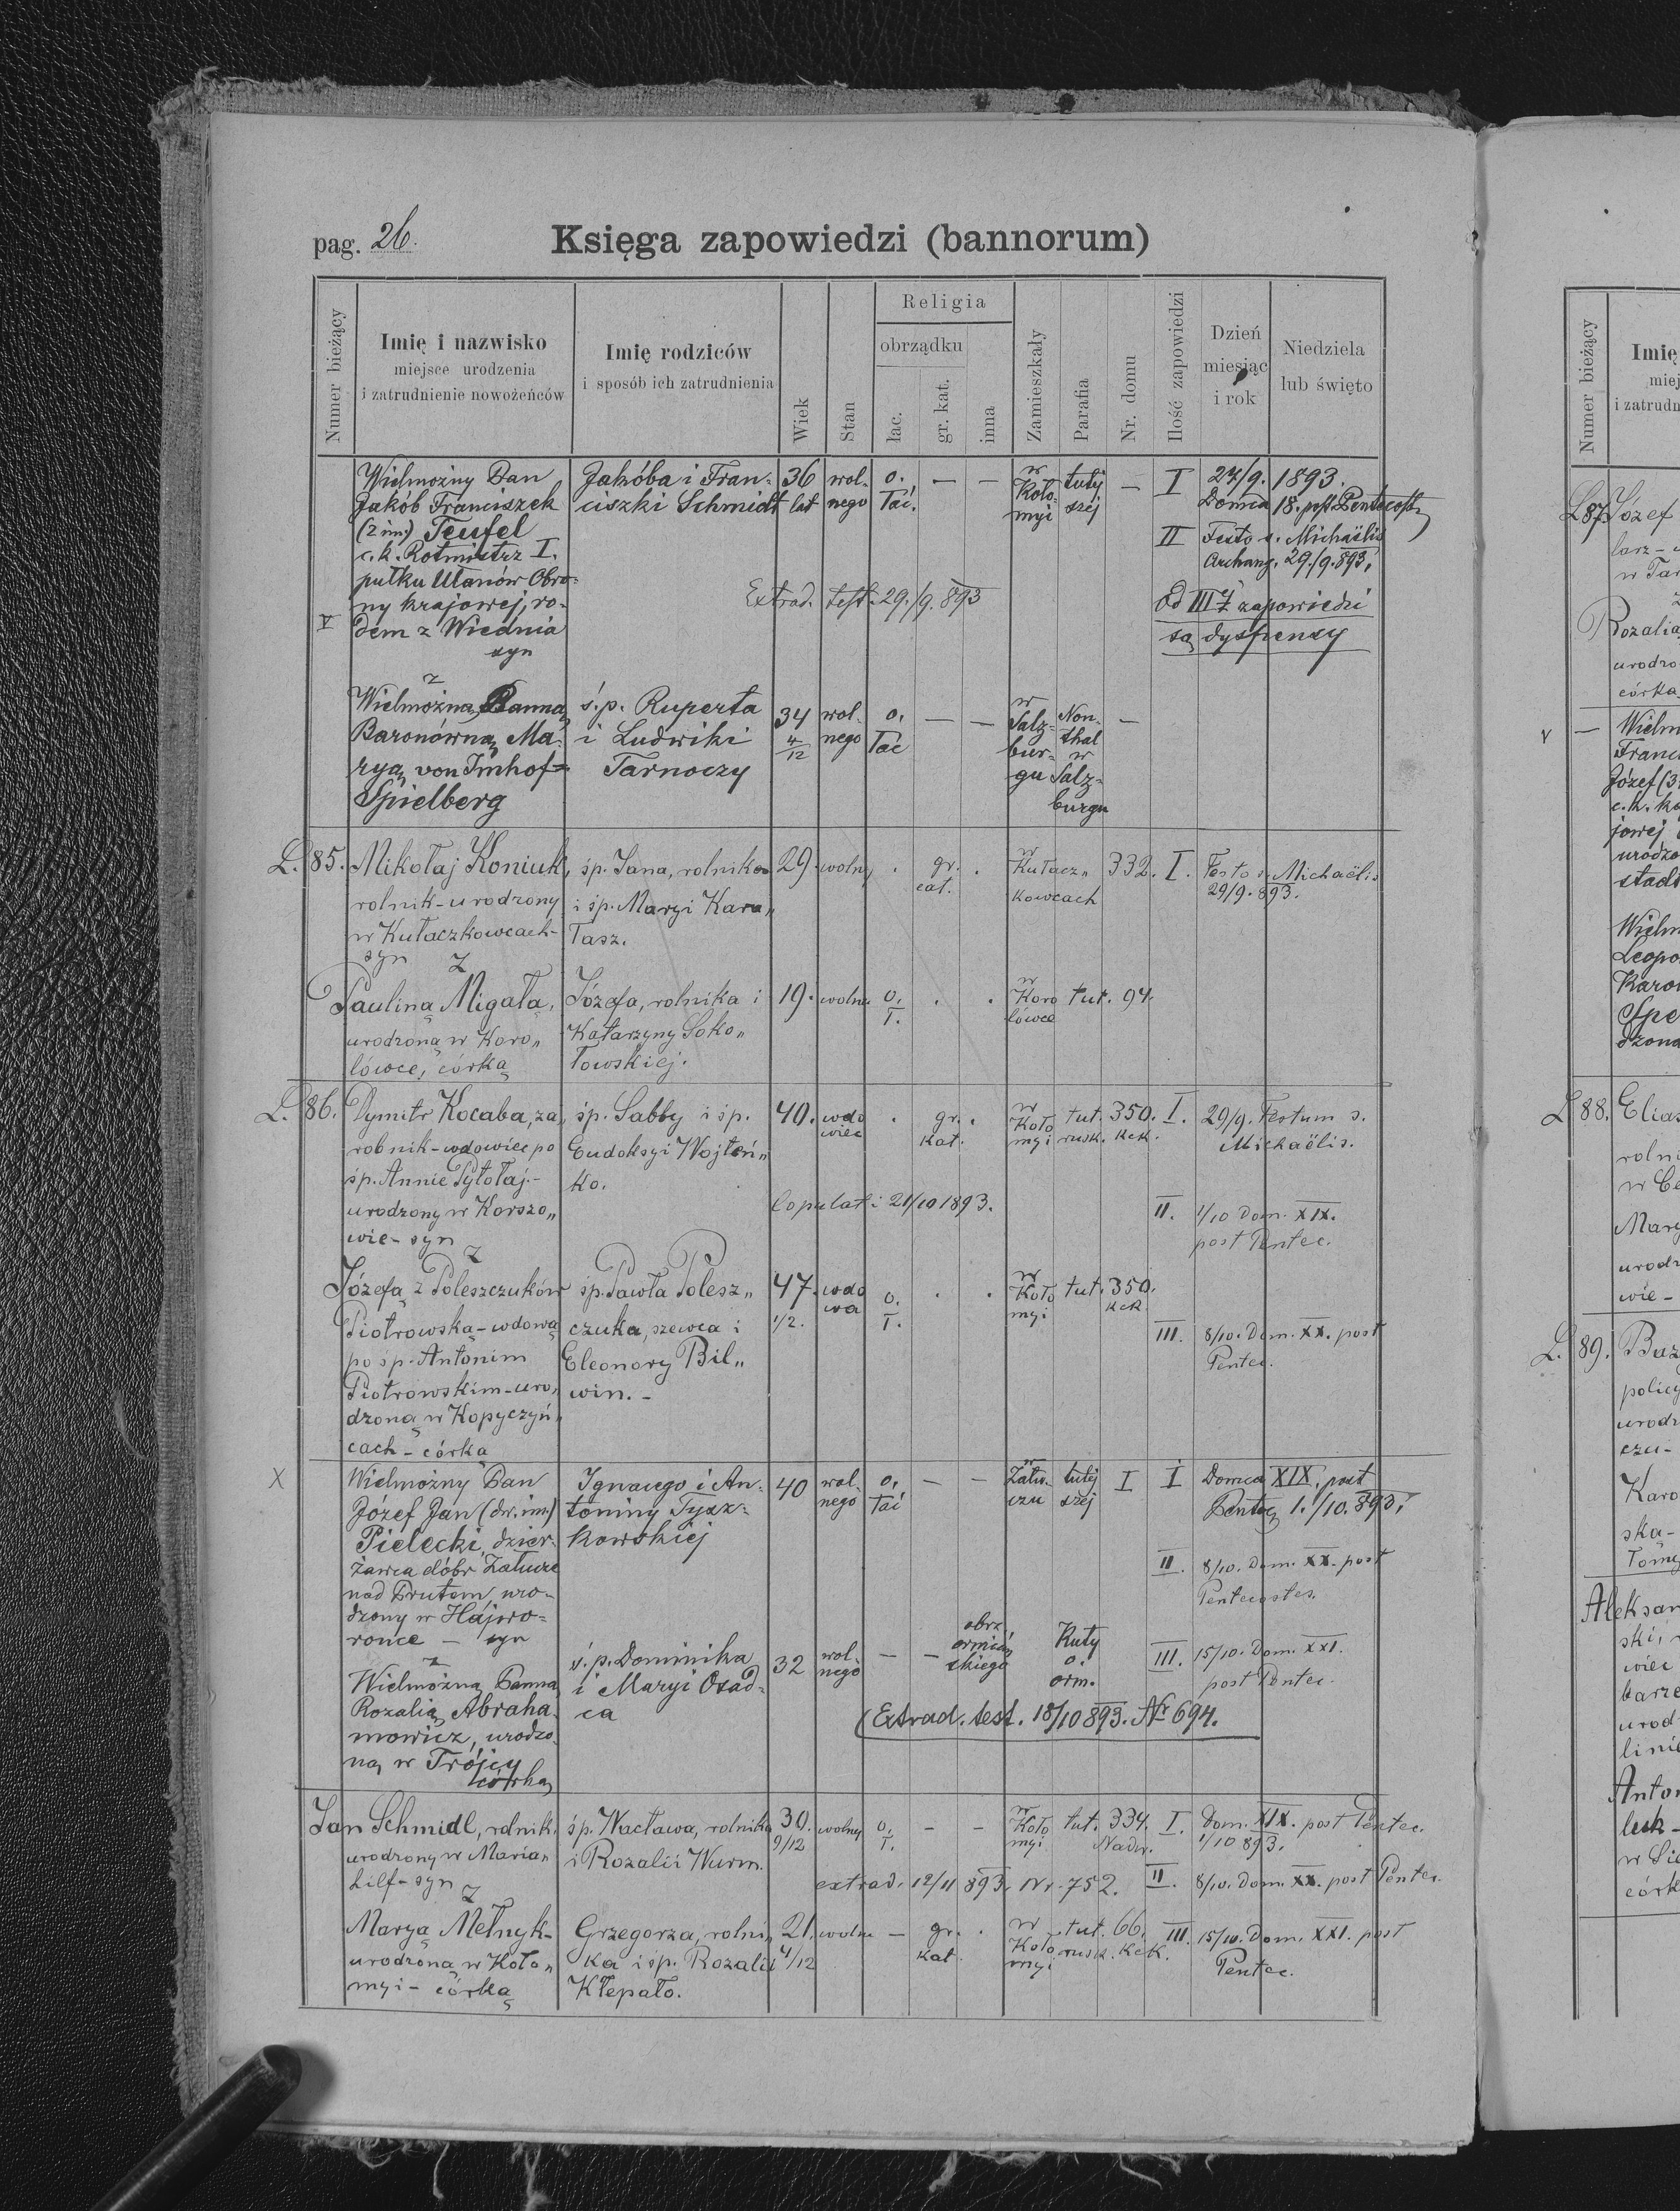 pag. 26.
Księga zapowiedzi (bannorum)
Numer bieżący
Imię i nazwisko
miejsce urodzenia
i zatrudnienie nowożeńców
Imię rodziców
i sposób ich zatrudnienia
Wiek
Stan
Religia
obrządku
łac.
gr. kat.
inna
Zamieszkały
Parafia
Nr. domu
Ilość zapowiedzi
Dzień
miesiąc
i rok
Niedziela
lub święto
Wielmożny Pan
Jakób Franciszek
(2 im.) Teufel
c. k. Rotmistrz I.
pułku Ułanów Obro-
ny krajowej, ro-
dem z Wiednia
syn
Jakóba i Fran-
ciszki Schmidt
36
lat
wol-
nego
o.
łać.
— —
w
Koło-
myi
tutej
szej
—
I
24/9. 1893.
Domca 18. post Pentecost
II Festo s. Michaëlis
Archang. 29./9. 893.
Extrad. test. 29./9. 893
Od III zapowiedzi
są dyspensy
z
Wielmożną Panną
Baronówną Ma-
ryą von Imhof-
Spielberg
ś. p. Ruperta
i Ludwiki
Tarnoczy
34
4/12
wol-
nego
o.
łać
— —
w
Salz-
bur-
gu
Non-
thal
w
Salz-
burgu
—
L. 85. Mikołaj Koniuk,
rolnik - urodzony
w Kułaczkowcach -
syn z
śp. Jana, rolnika
i śp. Maryi Kara„
łasz.
29. wolny . gr.
cat. .
w
Kułacz„
kowcach
332. I. Festo s. Michaëlis
29/9. 893.
Pauliną Migałą,
urodzoną w Koro„
lówce, córką
Józefa, rolnika i
Katarzyny Soko„
łowskiej.
19. wolna o.
ł. . .
w
Koro
lówce
tut. 94.
L. 86. Dymitr Kocaba, za„
robnik - wdowiec po
śp. Annie Tytołaj. -
urodzony w Korszo„
wie - syn z
śp. Sabby i śp.
Eudoksyi Wojteń„
ko.
40. wdo
wiec . gr.
kat. .
w
Koło
myi
tut.
rusk.
350.
KcK.
I. 29/9. Festum s.
Michaëlis.
Copulati 21/10 1893.
II. 1/10 Dom. XIX.
post Pentec.
Józefą z Poleszczuków
Piotrowską - wdową
po śp. Antonim
Piotrowskim - uro„
dzoną w Kopyczyń„
cach - córką
śp. Pawła Polesz„
czuka, szewca i
Eleonory Bil„
win. -
47.
1/2.
wdo
wa
o.
ł. . .
w
Koło
myi
tut. 350.
KcK.
III. 8/10. Dom. XX. post
Pentec.
X Wielmożny Pan
Józef Jan (dw. im.)
Pielecki, dzier-
żawca dóbr Załucze
nad Prutem, uro-
dzony w Hajwo-
ronce - syn
Ignacego i An-
toniny Tysz-
kowskiej
40 wol-
nego
o.
łać
— —
w
Zału-
czu
tutej
szej
I I Domca XIX. post
Pentec 1./10. 893.
II. 8/10. Dom. XX. post
Pentecostes.
z
Wielmożną Panną
Rozalią Abraha-
mowicz, urodzo-
ną w Trójcy
córką
ś. p. Dominika
i Maryi Osad-
ca
32 wol-
nego
— —
obrz.
ormiań
skiego
Kuty
o.
orm.
III. 15/10. Dom. XXI.
post Pentec.
(Extrad. test. 18/10 893. № 694.
Jan Schmidl, rolnik,
urodzony w Maria„
hilf - syn z
śp. Wacława, rolnika
i Rozalii Wurm.
30.
9/12
wolny o.
ł. - -
w
Koło
myi
tut. 334.
Nadw.
I. Dom. XIX. post Pentec.
1/10 893.
extrad. 12/11 893. Nr. 752.
II. 8/10. Dom. XX. post Pentec.
Maryą Mełnyk -
urodzoną w Koło„
myi - córką
Grzegorza, rolni„
ka i śp. Rozalii
Kłepało.
21.
4/12
wolna - gr.
kat. .
w
Koło
myi
tut.
rusk.
66.
KcK.
III. 15/10. Dom. XXI. post
Pentec.
Numer bieżący
L 87. Józef
w Tar
Rozalia
urodzo
córka
Wielm
Franc
Józef (3
c. k.
jowej
urodzo
stadt
Wielm
Leopo
Karo
Spe
dzona
L 88. Elias
rolni
w
Mary
urodz
wie -
L. 89.
policy
urodz
czu -
Karo
ska -
Aleksan
ski,
wiec
urod
linie
Anton
córk